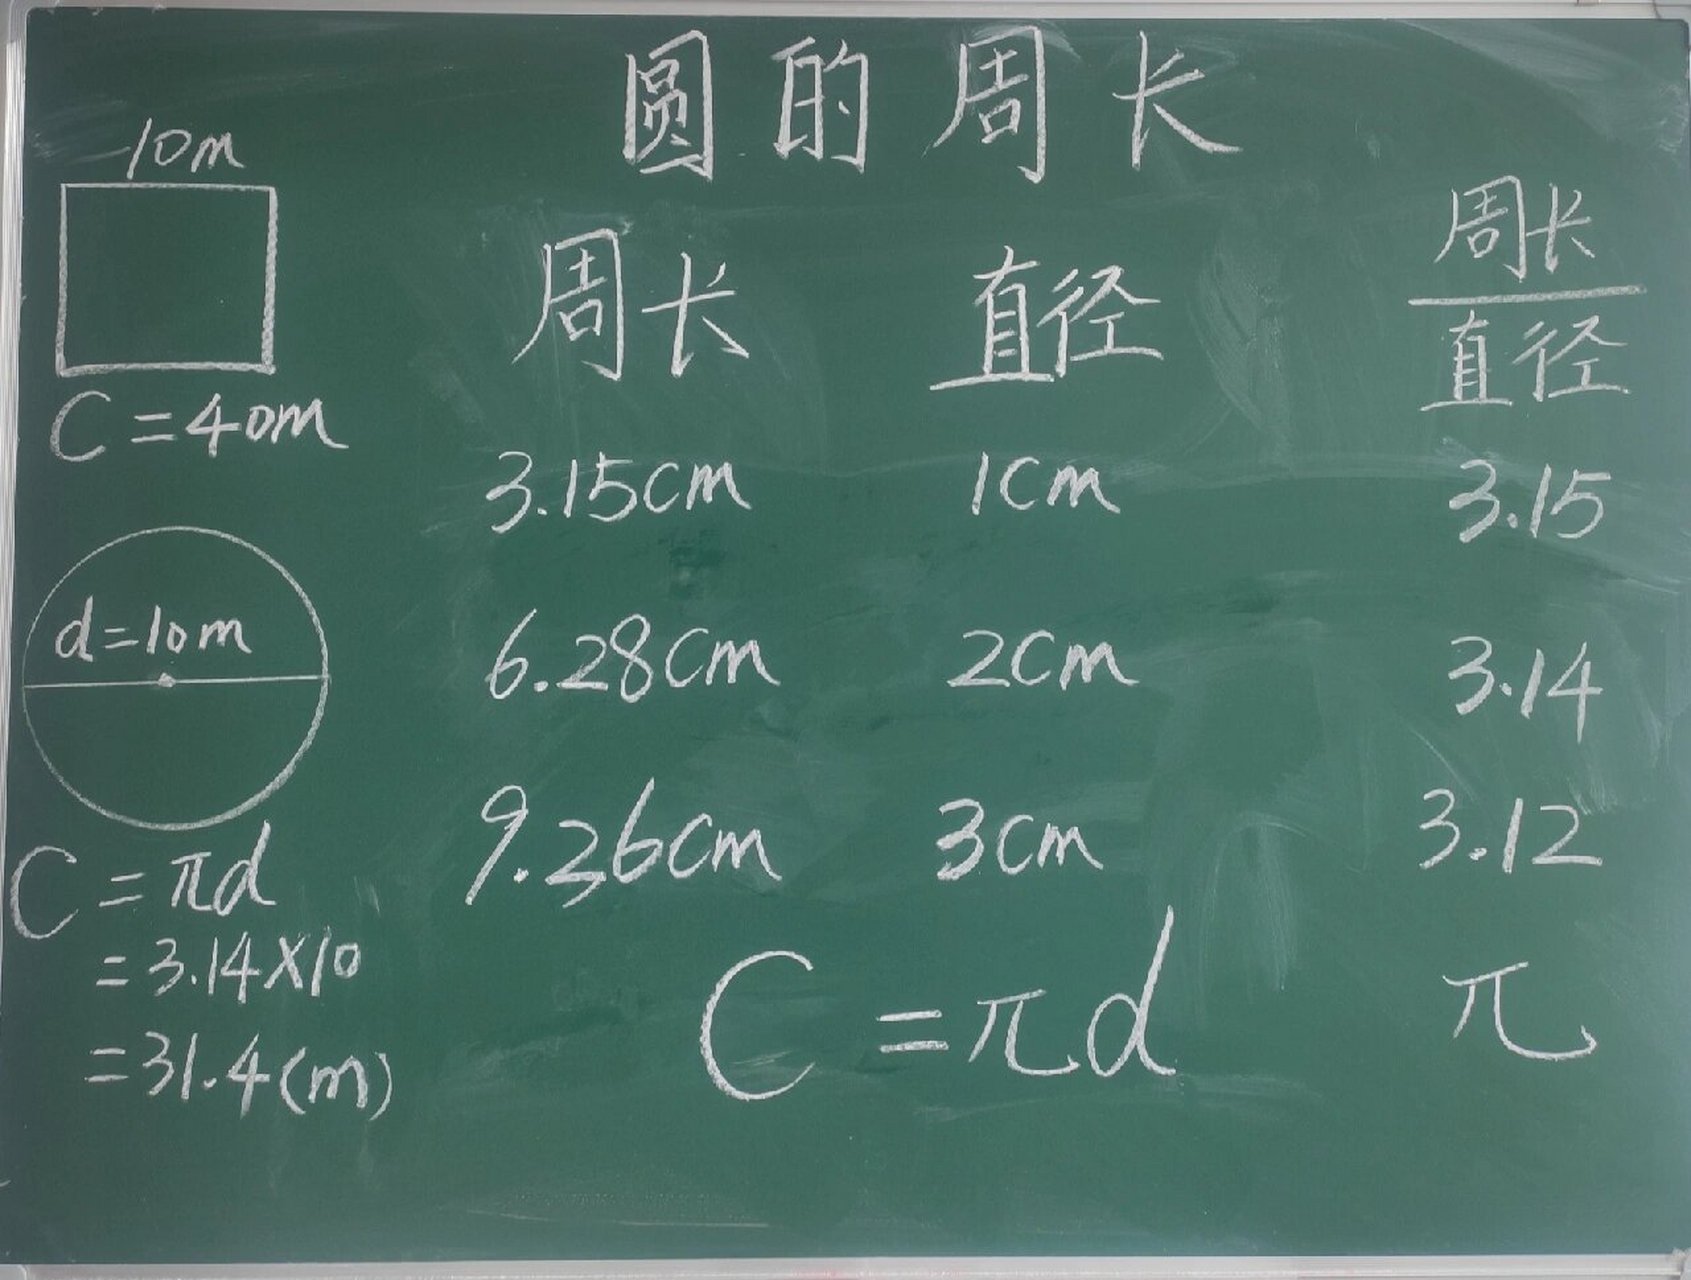 圆的周长
10m
C=40m
d=10m
C=πd
=3.14×10
=31.4(m)
周长 直径 周长/直径
3.15cm 1cm 3.15
6.28cm 2cm 3.14
9.36cm 3cm 3.12
C=πd π